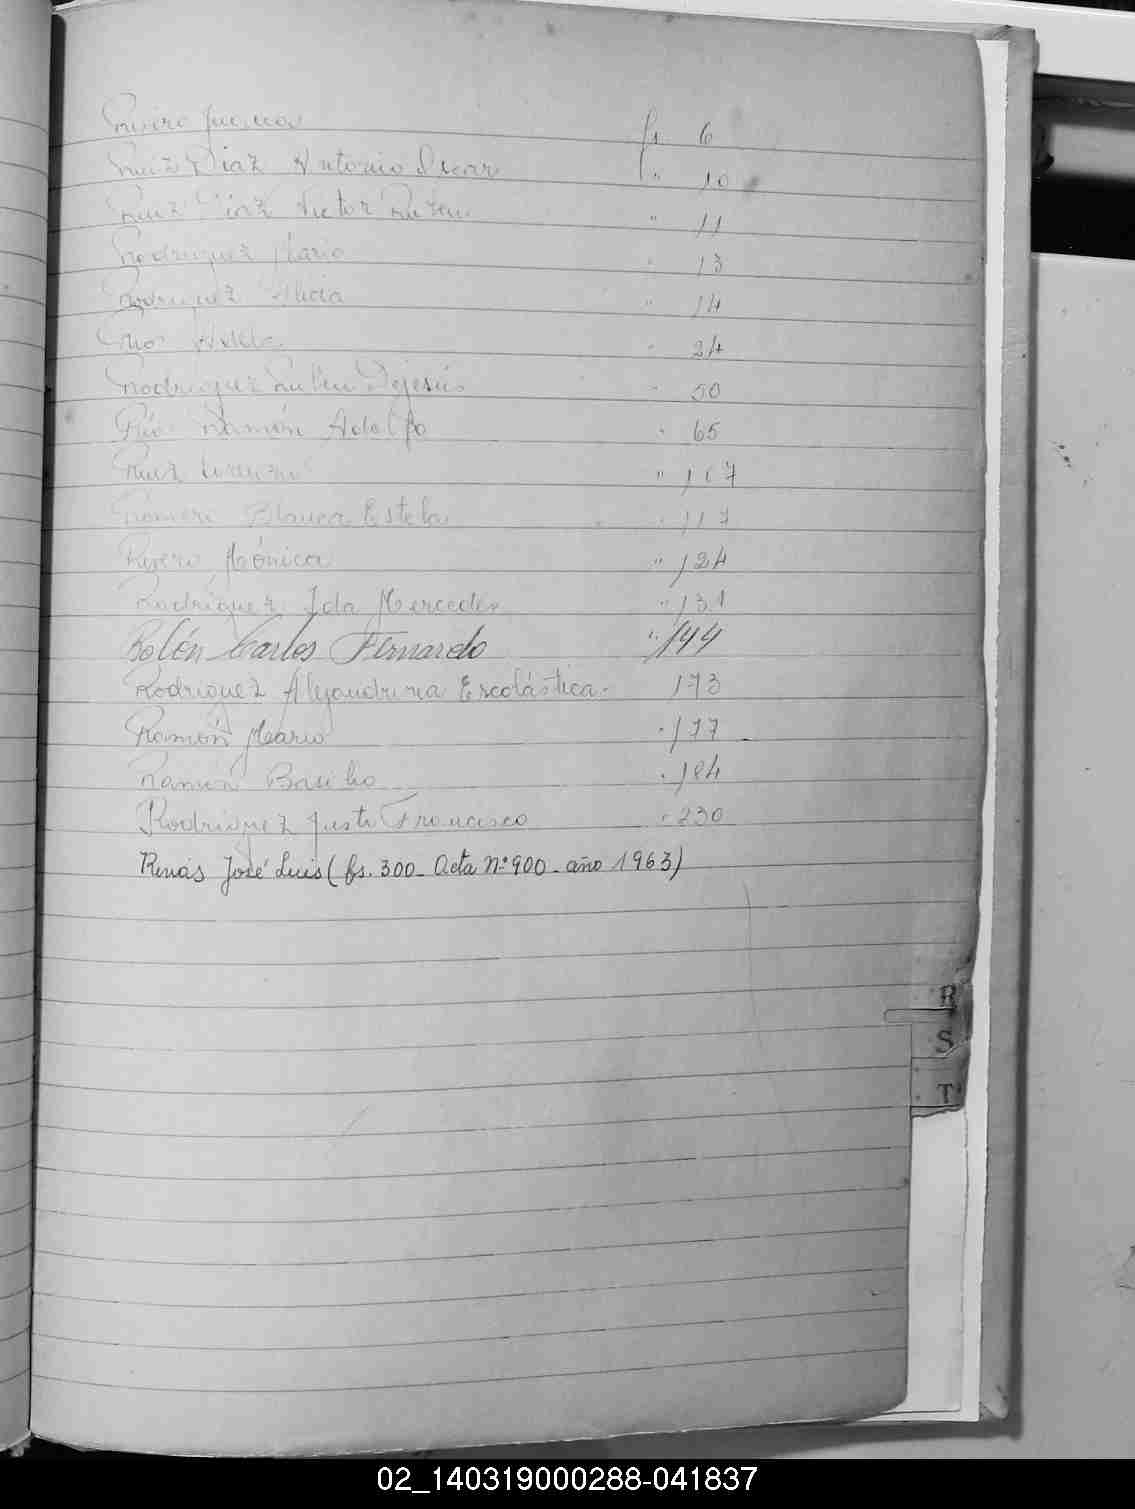 fs 6
Ruiz Diaz Antonio Oscar " 10
Ruiz Diaz Victor Ruben " 11
Rodriguez Mario " 13
Rodriguez Alicia " 14
" 24
Rodriguez Dejesús " 50
Ramón Adolfo " 65
Ruiz " 107
Romero Blanca Estela " 117
Rivero Mónica " 124
Rodriguez Ida Mercedes " 131
Rolón Carlos Fernando " 144
Rodriguez Alejandrina Escolástica " 173
Ramón Mario " 177
Ramón Basilio " 184
Rodriguez Justo Francisco " 230
Renás José Luis (fs. 300_ Acta Nº 900_ año 1963)
R
S
T
02_140319000288-041837